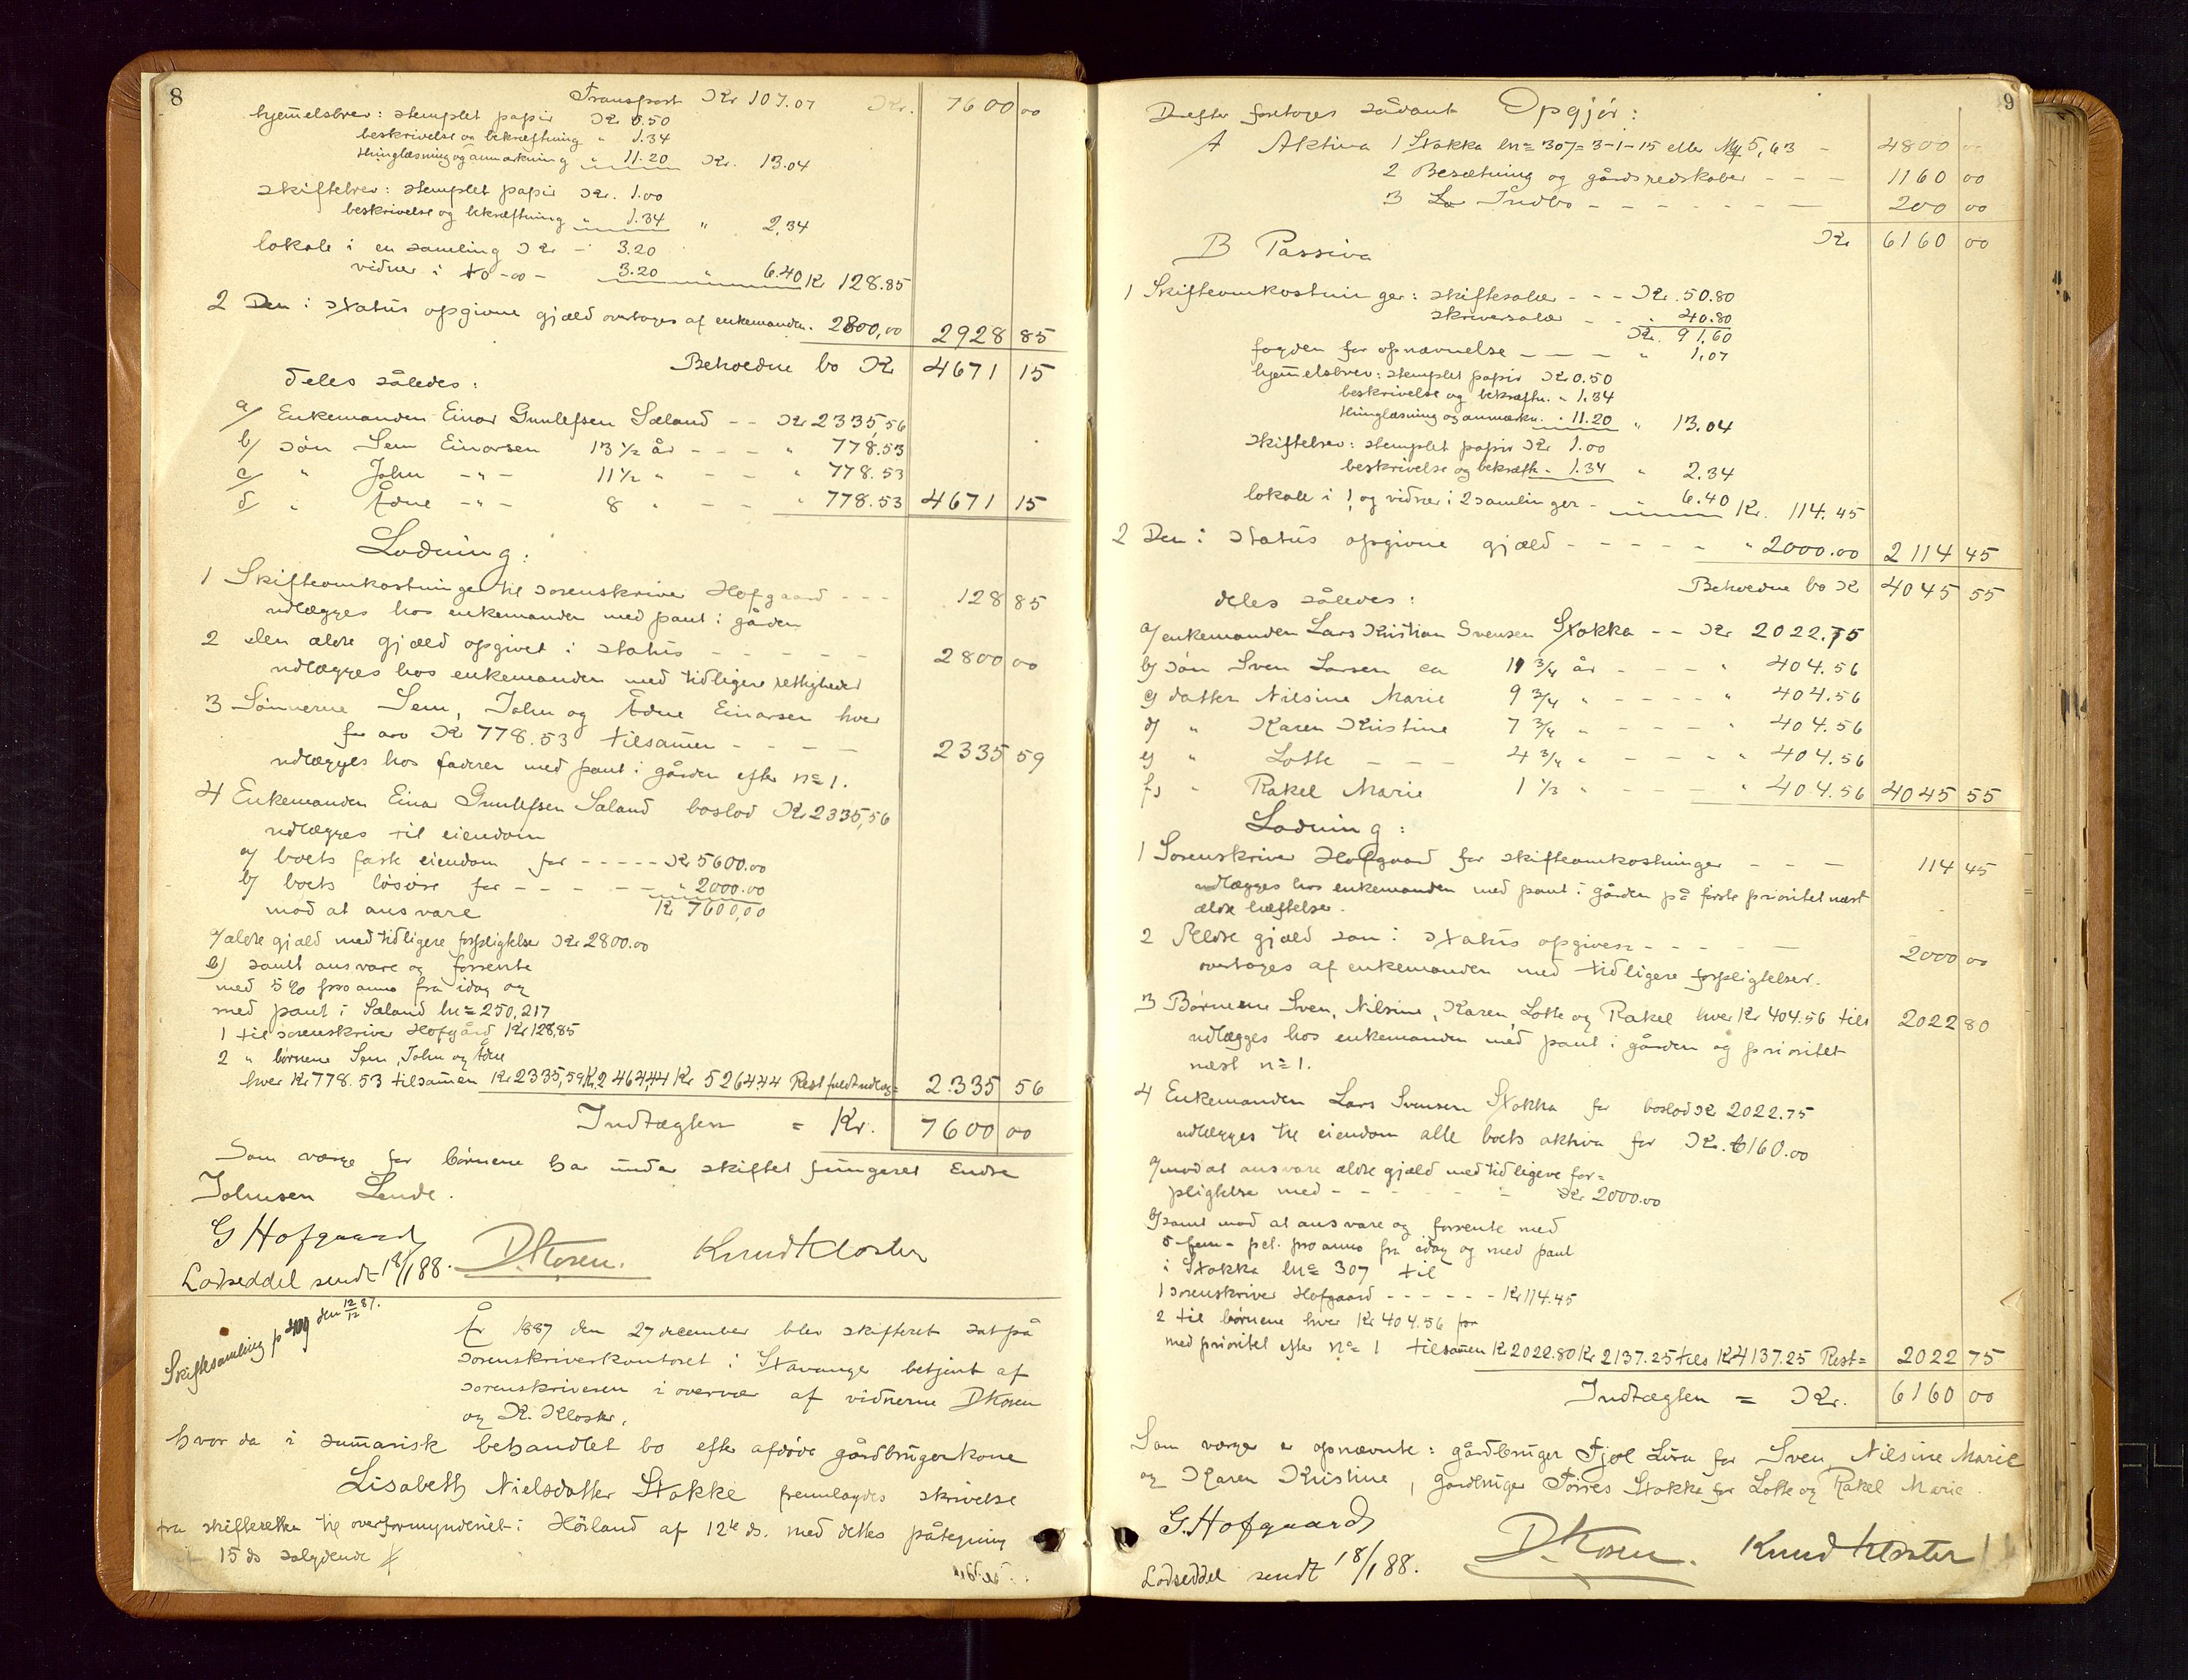 8
Transport Kr 107.07 Kr. 7600 00
hjemelsbrev: stemplet papir Kr 0.50
beskrivelse og bekræftning " 1.34
thinglæsning og anmærkning " 11.20 Kr. 13.04
skiftebrev: stemplet papir Kr. 1.00
beskrivelse og bekræftning " 1.34 " 2.34
lokale i en samling Kr - 3.20
vidner i to -oo- 3.20 " 6.40 Kr 128.85
2 Den i status opgivne gjæld overtages af enkemanden. 2800,00 2928 85
Beholdne bo Kr 4671 15
deles således:
a/ Enkemanden Einar Gunlefsen Sæland -- Kr 2335,56
b/ søn Sem Einarsen 13 1/2 år - - - " 778.53
c/ " John -"- 11 1/2 " - - " 778.53
d/ " Ådne -"- 8 " - - " 778.53 4671 15
Lodning:
1 Skifteomkostninger til sorenskriver Hofgaard --- 128 85
udlægges hos enkemanden med pant i gården
2 den ældre gjæld opgivet i status - - - - - 2800 00
udlægges hos enkemanden med tidligere rettigheder
3 Sønnerne Sem, John og Ådne Einarsen hver
for arv Kr 778.53 tilsamen - - - - 2335 59
udlægges hos faderen med pant i gården efter no 1.
4 Enkemanden Einar Gunlefsen Sæland boslod Kr 2335,56
udlægges til eiendom
a/ boets faste eiendom for ----- Kr 5600.00
b/ boets løsøre for - - - - - " 2000.00
mod at ansvare Kr 7600,00
a/ ældre gjæld med tidligere forpligtelse Kr 2800.00
b) samt ansvare og forrente
med 5% pro anno fra idag og
med pant i Sæland lno 250,217
1 til sorenskriver Hofgård Kr 128,85
2 " børnene Sem, John og Ådne
hver Kr 778.53 tilsamen Kr 2335,59 Kr. 2464,44 Kr 5264,44 Rest fuldt udlæg= 2.335 56
Indtægten = Kr. 7600 00
Som værge for børnene har under skiftet fungeret Endre
Johnsen Lende.
G Hofgaard D. Kosen. Knud Kloster
Lodseddel sendt 18/1 88.
Skiftesamling p 409 den 12/12 87.
År 1887 den 27 december blev skifteret sat på
sorenskriverkontoret i Stavanger betjent af
sorenskriveren i overvær af vidnerne D Kosen
og K. Kloster,
hvor da i sumarisk behandlet bo efter afdøde gårdbrugerkone
Lisabeth Nielsdatter Stokke fremlagdes skrivelse
fra skifteretten til overformynderiet i Höiland af 12te ds. med dettes påtegning
15 ds solydende #
9
Derefter foretoges sådant Opgjør:
A Aktiva 1 Stokka lno 307= 3-1-15 eller My 5,63 - 4800 00
2 Besætning og gårdsredskaber - - - 1160 00
3 Indbo - - - - - - - 200 00
Kr 6160 00
B Passiva
1 Skifteomkostninger: skiftesalær - - - Kr. 50.80
skriversalær - - " 40.80
Kr. 91.60
fogden for opnævnelse - - - " 1,07
hjemelsbrev: stemplet papir Kr 0.50
beskrivelse og bekræftn. " 1.34
thinglæsning og anmærkn. " 11.20 " 13.04
skiftebrev: stemplet papir Kr 1.00
beskrivelse og bekræft. - 1.34 " 2.34
lokale i 1 og vidner i 2 samlinger - " 6.40 Kr. 114.45
2 Den i status opgivne gjæld - - - - - " 2000.00 2114 45
Beholdne bo Kr 4045 55
deles således:
a/ enkemanden Lars Kristian Svensen Stokka -- Kr 2022.75
b/ søn Sven Larsen ca 11 3/4 år - - - " 404.56
c/ datter Nilsine Marie 9 3/4 " - - - - " 404.56
d/ " Karen Kristine 7 3/4 " - - - - " 404.56
e/ " Lotte - - - 4 3/4 " - - - " 404.56
f/ " Rakel Marie 1 1/3 " - - - - " 404.56 4045 55
Lodning:
1 Sorenskriver Hofgaard for skifteomkostninger - - - 114 45
udlægges hos enkemanden med pant i gården på første prioritet næst
ældre hæftelser.
2 Ældre gjæld som i status opgiven - - - - - 2000 00
overtages af enkemanden med tidligere forpligtelser.
3 Børnene Sven, Nilsine, Karen, Lotte og Rakel hver Kr 404.56 tils 2022 80
udlægges hos enkemanden med pant i gården og prioritet
næst no 1.
4 Enkemanden Lars Svensen Stokka for boslod Kr 2022.75
udlægges til eiendom alle boets aktiva for Kr. 6160.00
a/ mod at ansvare ældre gjæld med tidligere for=
pligtelse med - - - - - - Kr 2000.00
b/ samt mod at ansvare og forrente med
5-fem- pct. pro anno fra idag og med pant
i Stokka lno 307 til
1 sorenskriver Hofgaard - - - - - - Kr 114.45
2 til børnene hver Kr 404.56 for
med prioritet efter no 1 tilsamen Kr 2022.80 Kr 2137.25 tils Kr 4137.25 Rest= 2022 75
Indtægten = Kr. 6160 00
Som værger er opnævnte: gårdbruger Fjol Lura for Sven, Nilsine Marie
og Karen Kristine, gårdbruger Torres Stokka for Lotte og Rakel Marie.
G. Hofgaard D. Kosen. Knud Kloster
Lodseddel sendt 18/1 88.